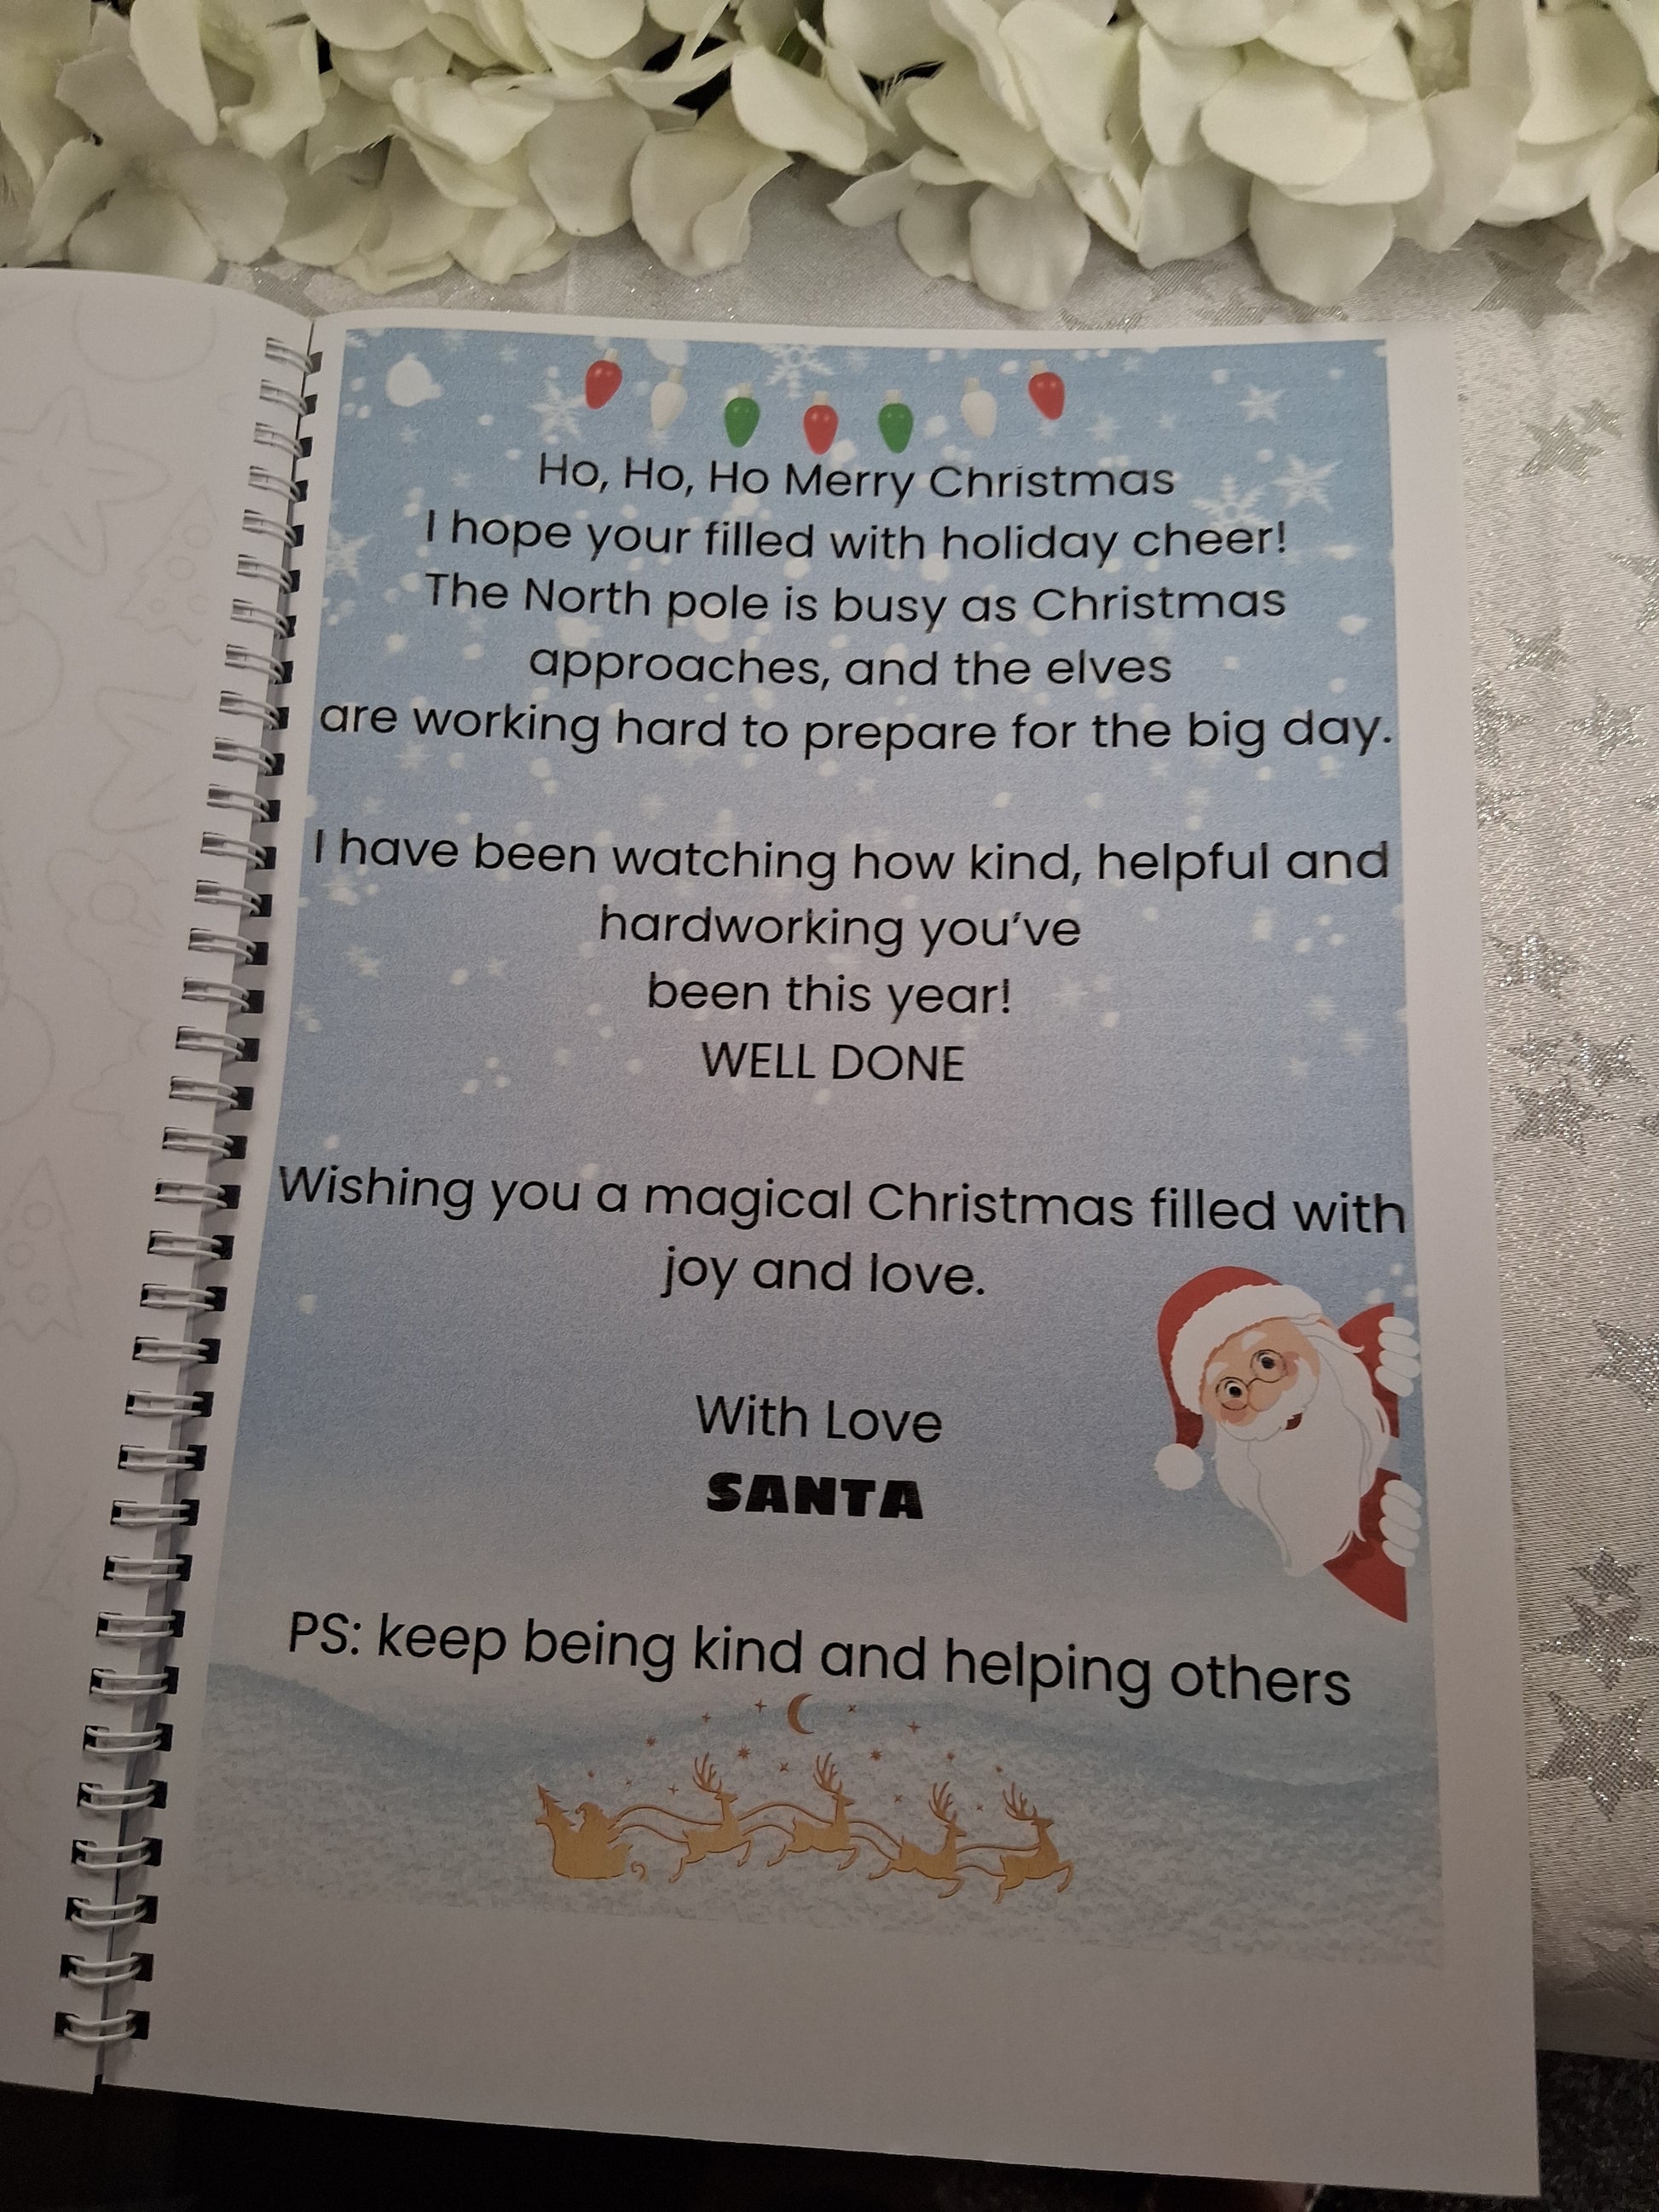 Ho, Ho, Ho Merry Christmas
I hope your filled with holiday cheer!
The North pole is busy as Christmas
approaches, and the elves
are working hard to prepare for the big day.
I have been watching how kind, helpful and
hardworking you've
been this year!
WELL DONE
Wishing you a magical Christmas filled with
joy and love.
With Love
SANTA
PS: keep being kind and helping others